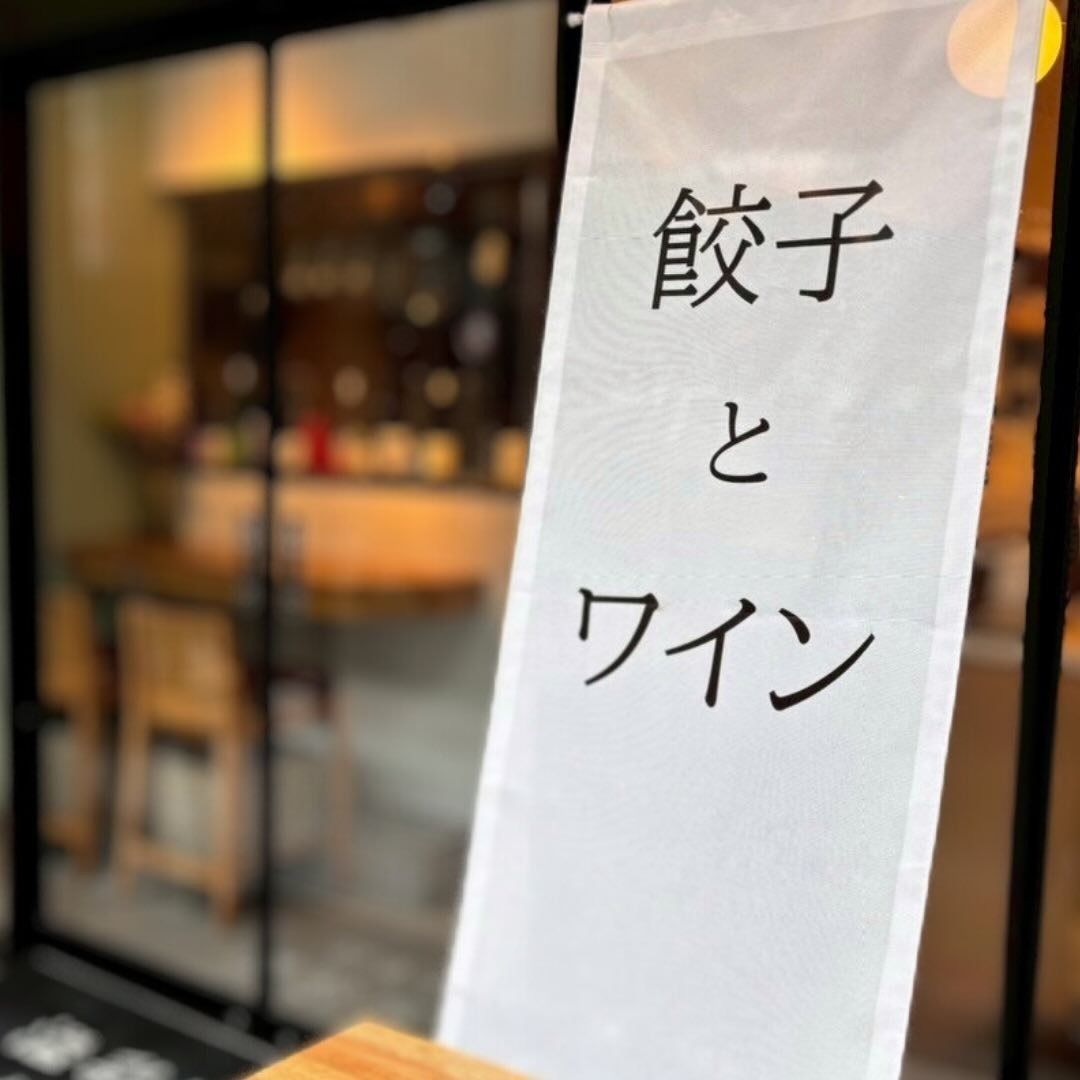 餃子
と
ワイン